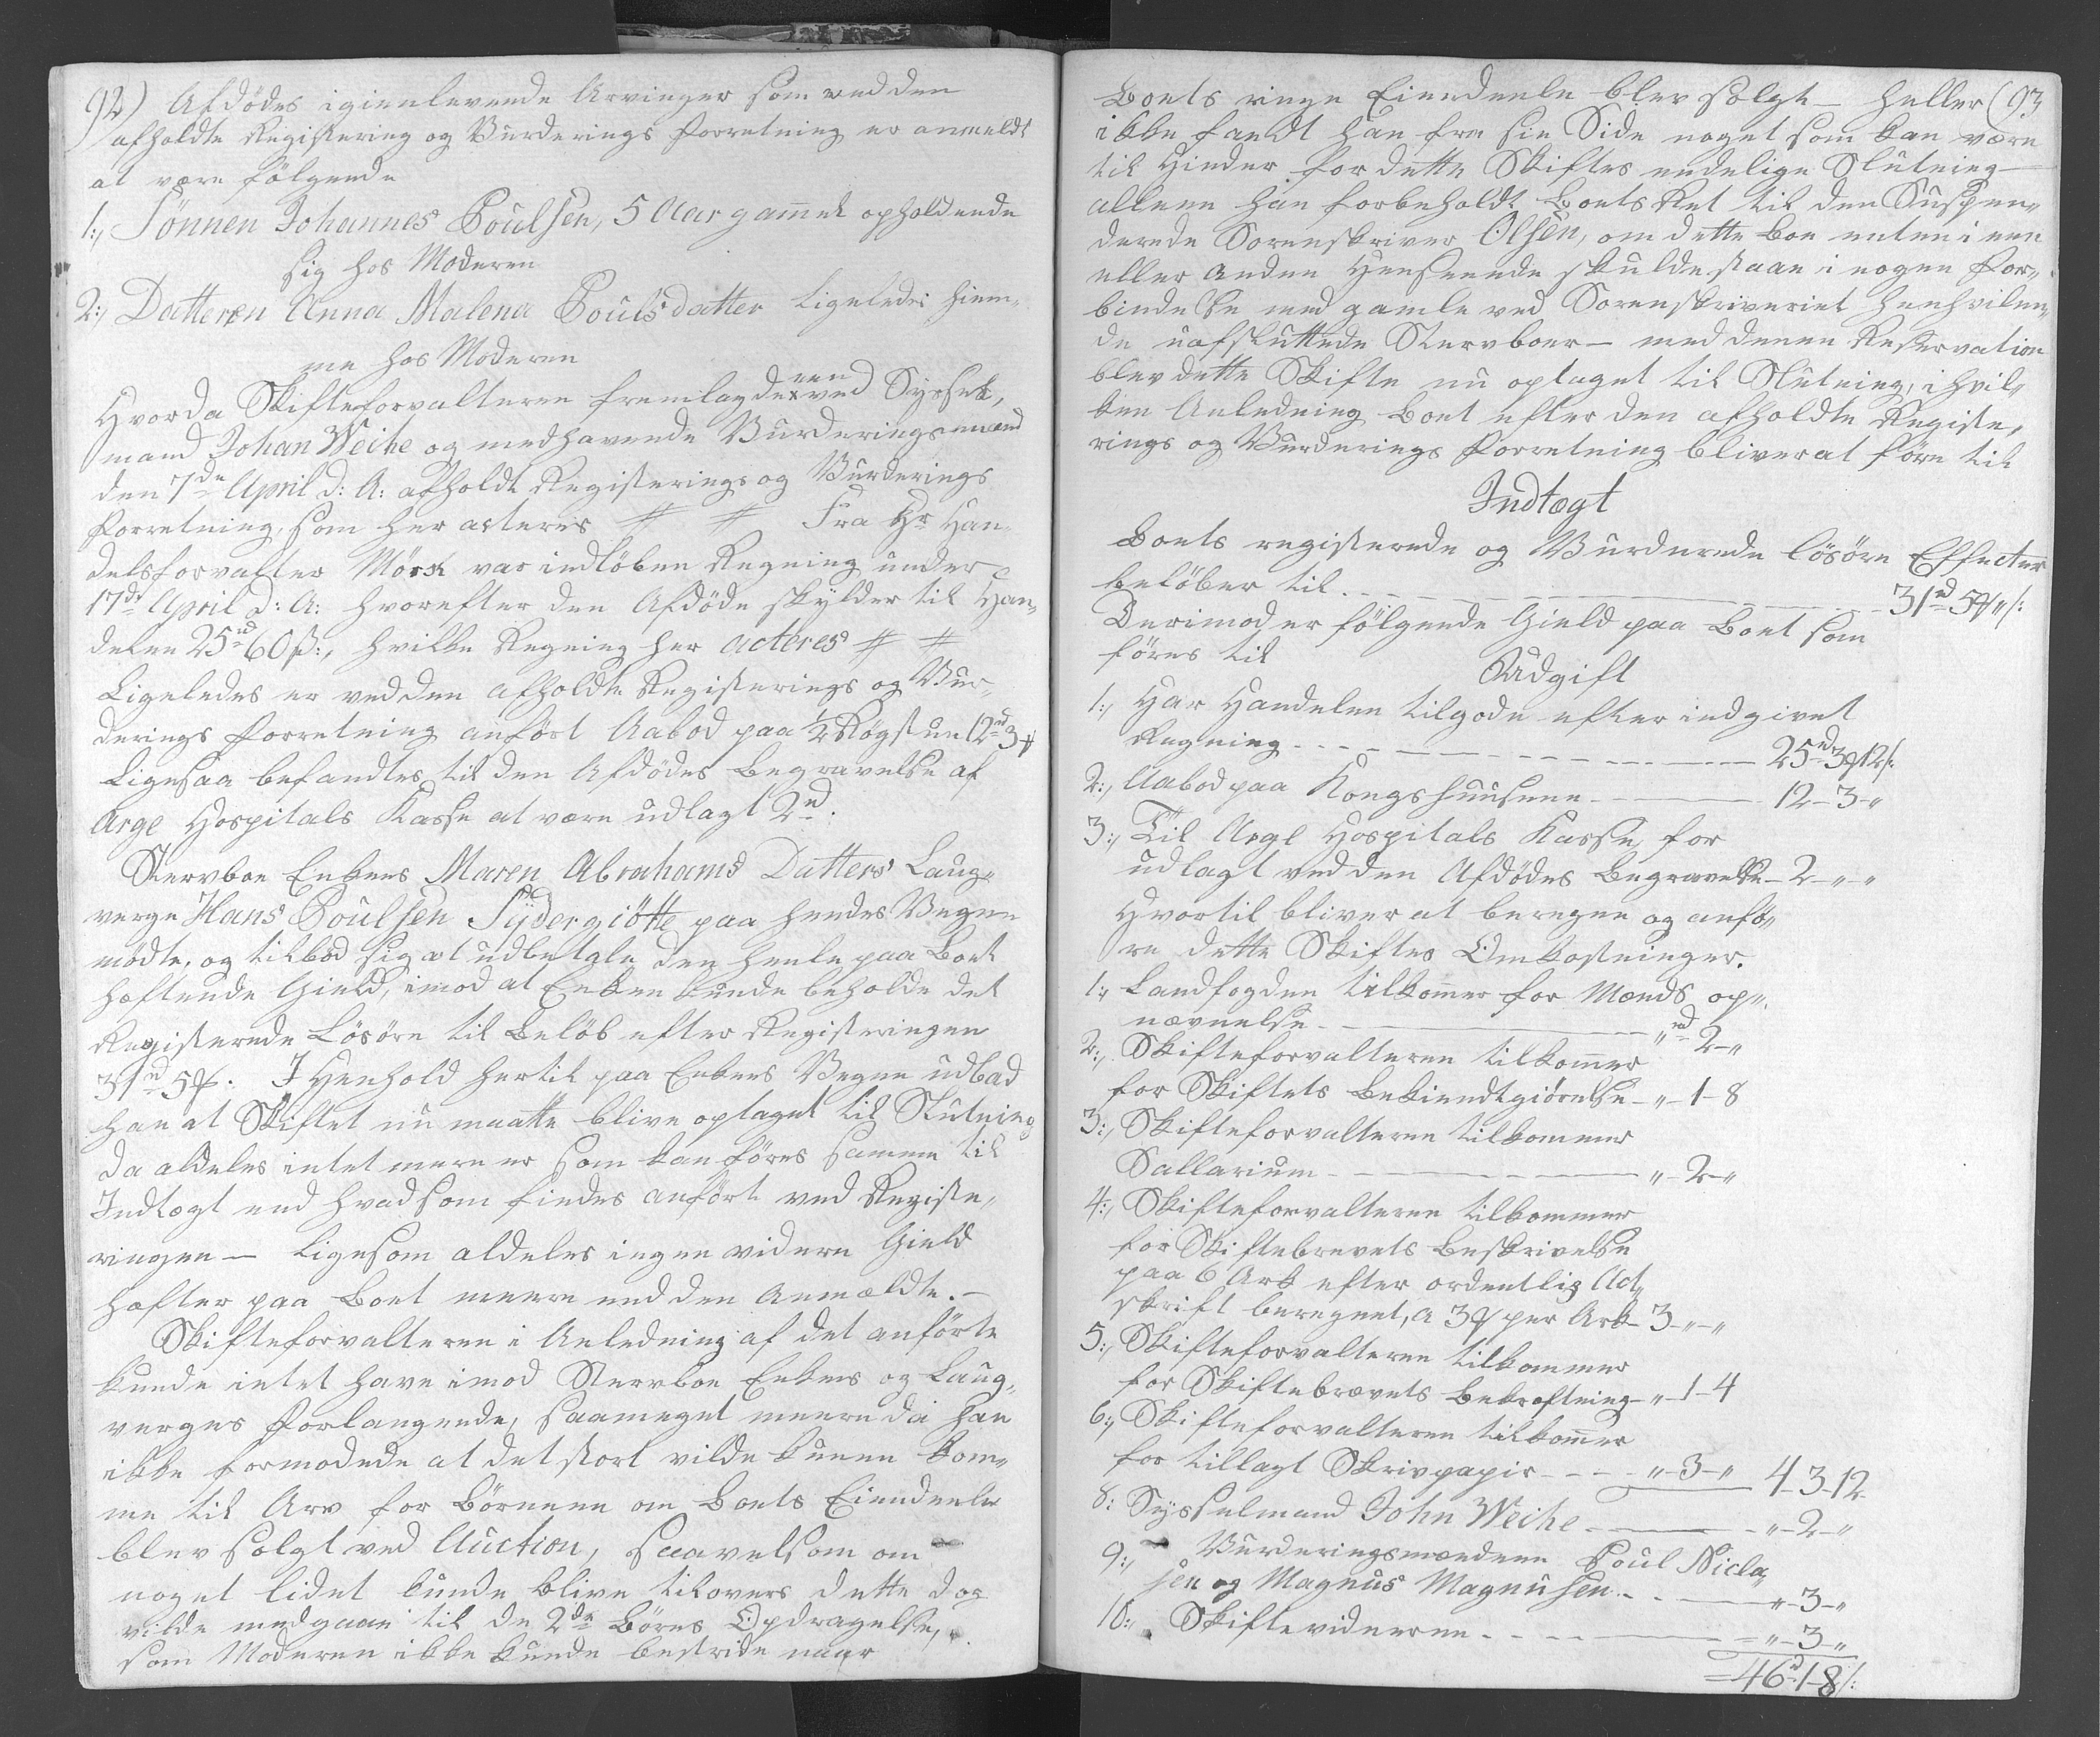 92) Afdödes igienlevende Arvinger som ved den
afholdte Registering og Vurderings Forretning er anmeldt
at være følgende
1:, Sönnen Johannes Poulsen, 5 Aar gam̄el opholdende
sig hos Moderen
2:, Datteren Anna Malena Poulsdatter ligeledes hiem¬
me hos Moderen
Hvorda Skifteforvalteren fremlagde een ved Syssel¬
mand Johan Weihe og medhavende Vurderingsmænd
den 7de April d: A: afholdt Registerings og Vurderings
Forretning, som her acteres # # Fra Hr Han¬
delsforvalter Mörk var indlöben Regning under
17de April d: A: hvorefter den Afdöde skylder til Han¬
delen 25rd 60 ß:, hvilke Regning her acteres # #
Ligeledes er ved den afholdte Registerings og Vur¬
derings Forretning anfört Aabod paa ½ Rögstue 12rd 3#
Ligesaa befandtes til den Afdödes Begravelse af
Arge Hospitals Kasse at være udlagt 2rd.
Stervboe Enkens Maren Abrahams Datters Laug¬
verge Hans Poulsen Sydergiötte paa hendes Vegne
mödte, og tilböd sig at udbetale den heele paa Boet
hæftende Gield, imod at Enken kunde beholde det
Registerede Lösöre til Belöb efter Registeringen
31rd 5#. I Henhold hertil paa Enkens Vegne udbad
han at Skiftet nu maatte blive optaget til Slutning
da aldeles intet mere er som kan föres samme til
Indtægt end hvad som findes anfört ved Registe¬
ringen — ligesom aldeles ingen videre Gield
hæfter paa Boet meere end den Anmældte. —
Skifteforvalteren i Anledning af det anförte
kunde intet have imod Stervboe Enkens og Laug¬
verges Forlangende, saameget meere da han
ikke formodede at det stort vilde kunne kom¬
me til Arv for Börnene om Boets Eiendeele
blev solgt ved Auction, saavelsom om
noget lidet kunde blive tilovers dette dog
vilde medgaae til de 2de Börns Opdragelse,
som Moderen ikke kunde bestride naar
Boets ringe Eiendeele blev solgt — heller (93
ikke fandt han fra sin Side noget som kan være
til Hinder for dette Skiftes endelige Slutning —
alleene han forbeholdt Boets Ret til den Suspen¬
derede Sorenskriver Olsen, om dette Boe enten i een
eller anden Henseende skulde staae i nogen For¬
bindelse med gamle ved Sorenskriveriet henhvilen¬
de uafsluttede Stervboer — med denne Reservation
blev dette Skifte nu optaget til Slutning, i hvil¬
ken Anledning Boet efter den afholdte Registe¬
rings og Vurderings Forretning bliver at före til
Indtægt
Boets registerede og Vurderede lösöre Effecter
belöber til - - - 31rd 5# „ ß:
Derimod er fölgende Gield paa Boet som
föres til
Udgift
1:, Har Handelen tilgode efter indgivet
Regning - - - 25rd 3# 12ß:
2:, Aabod paa Kongshuusene - 12 - 3 - „
3:, Til Arge Hospitals Kasse for
udlagt ved den Afdödes Begravelse - 2 - „ - „
Hvortil bliver at beregne og anfö¬
re dette Skiftes Omkostninger.
1:, Landfogden tilkom̄er for Mænds op¬
nævnelse - „rd 2 - „
2:, Skifteforvalteren tilkom̄er
for Skiftets Bekiendtgiörelse - „ - 1 - 8
3:, Skifteforvalteren tilkommer
Sallarium - „ - 2 - „
4:, Skifteforvalteren tilkommer
for Skiftebrevets Beskrivelse
paa 6 Ark efter ordentlig Act¬
skrift beregnet, a 3# per Ark - 3 - „ - „
5:, Skifteforvalteren tilkommer
for Skiftebrevets Bekræftning - „ - 1 - 4
6:, Skifteforvalteren tilkom̄er
for tillagt Skrivpapir - - - „ - 3 - „ 4 - 3 - 12
8: Sysselmand John Weihe - „ - 2 - „
9:, Vurderingsmændene Poul Nicla¬
sen og Magnus Magnusen - - „ - 3 - „
10:, Skiftevidnerne - - - „ - 3 - „
= 46rd 1 - 8 ß: